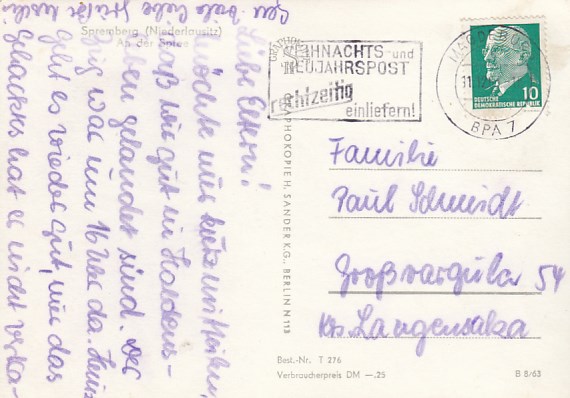 Spremberg (Niederlausitz)
An der Spree
Liebe Eltern!
Möchte nur kurz mitteilen,
daß wir gut in
gelandet sind. Der
Zug war um 16 Uhr da.
geht es wieder gut, nur das
hat es nicht
viele liebe Grüße
GRAPHOKOPIE H. SANDER K.G., BERLIN N 113
WEIHNACHTS- und
NEUJAHRSPOST
rechtzeitig
einliefern!
BPA 7
10
DEUTSCHE
DEMOKRATISCHE REPUBLIK
Familie
Paul Schmidt
Großvargula 54
Krs. Langensalza
Best.-Nr. T 276
Verbraucherpreis DM —.25
B 8/63